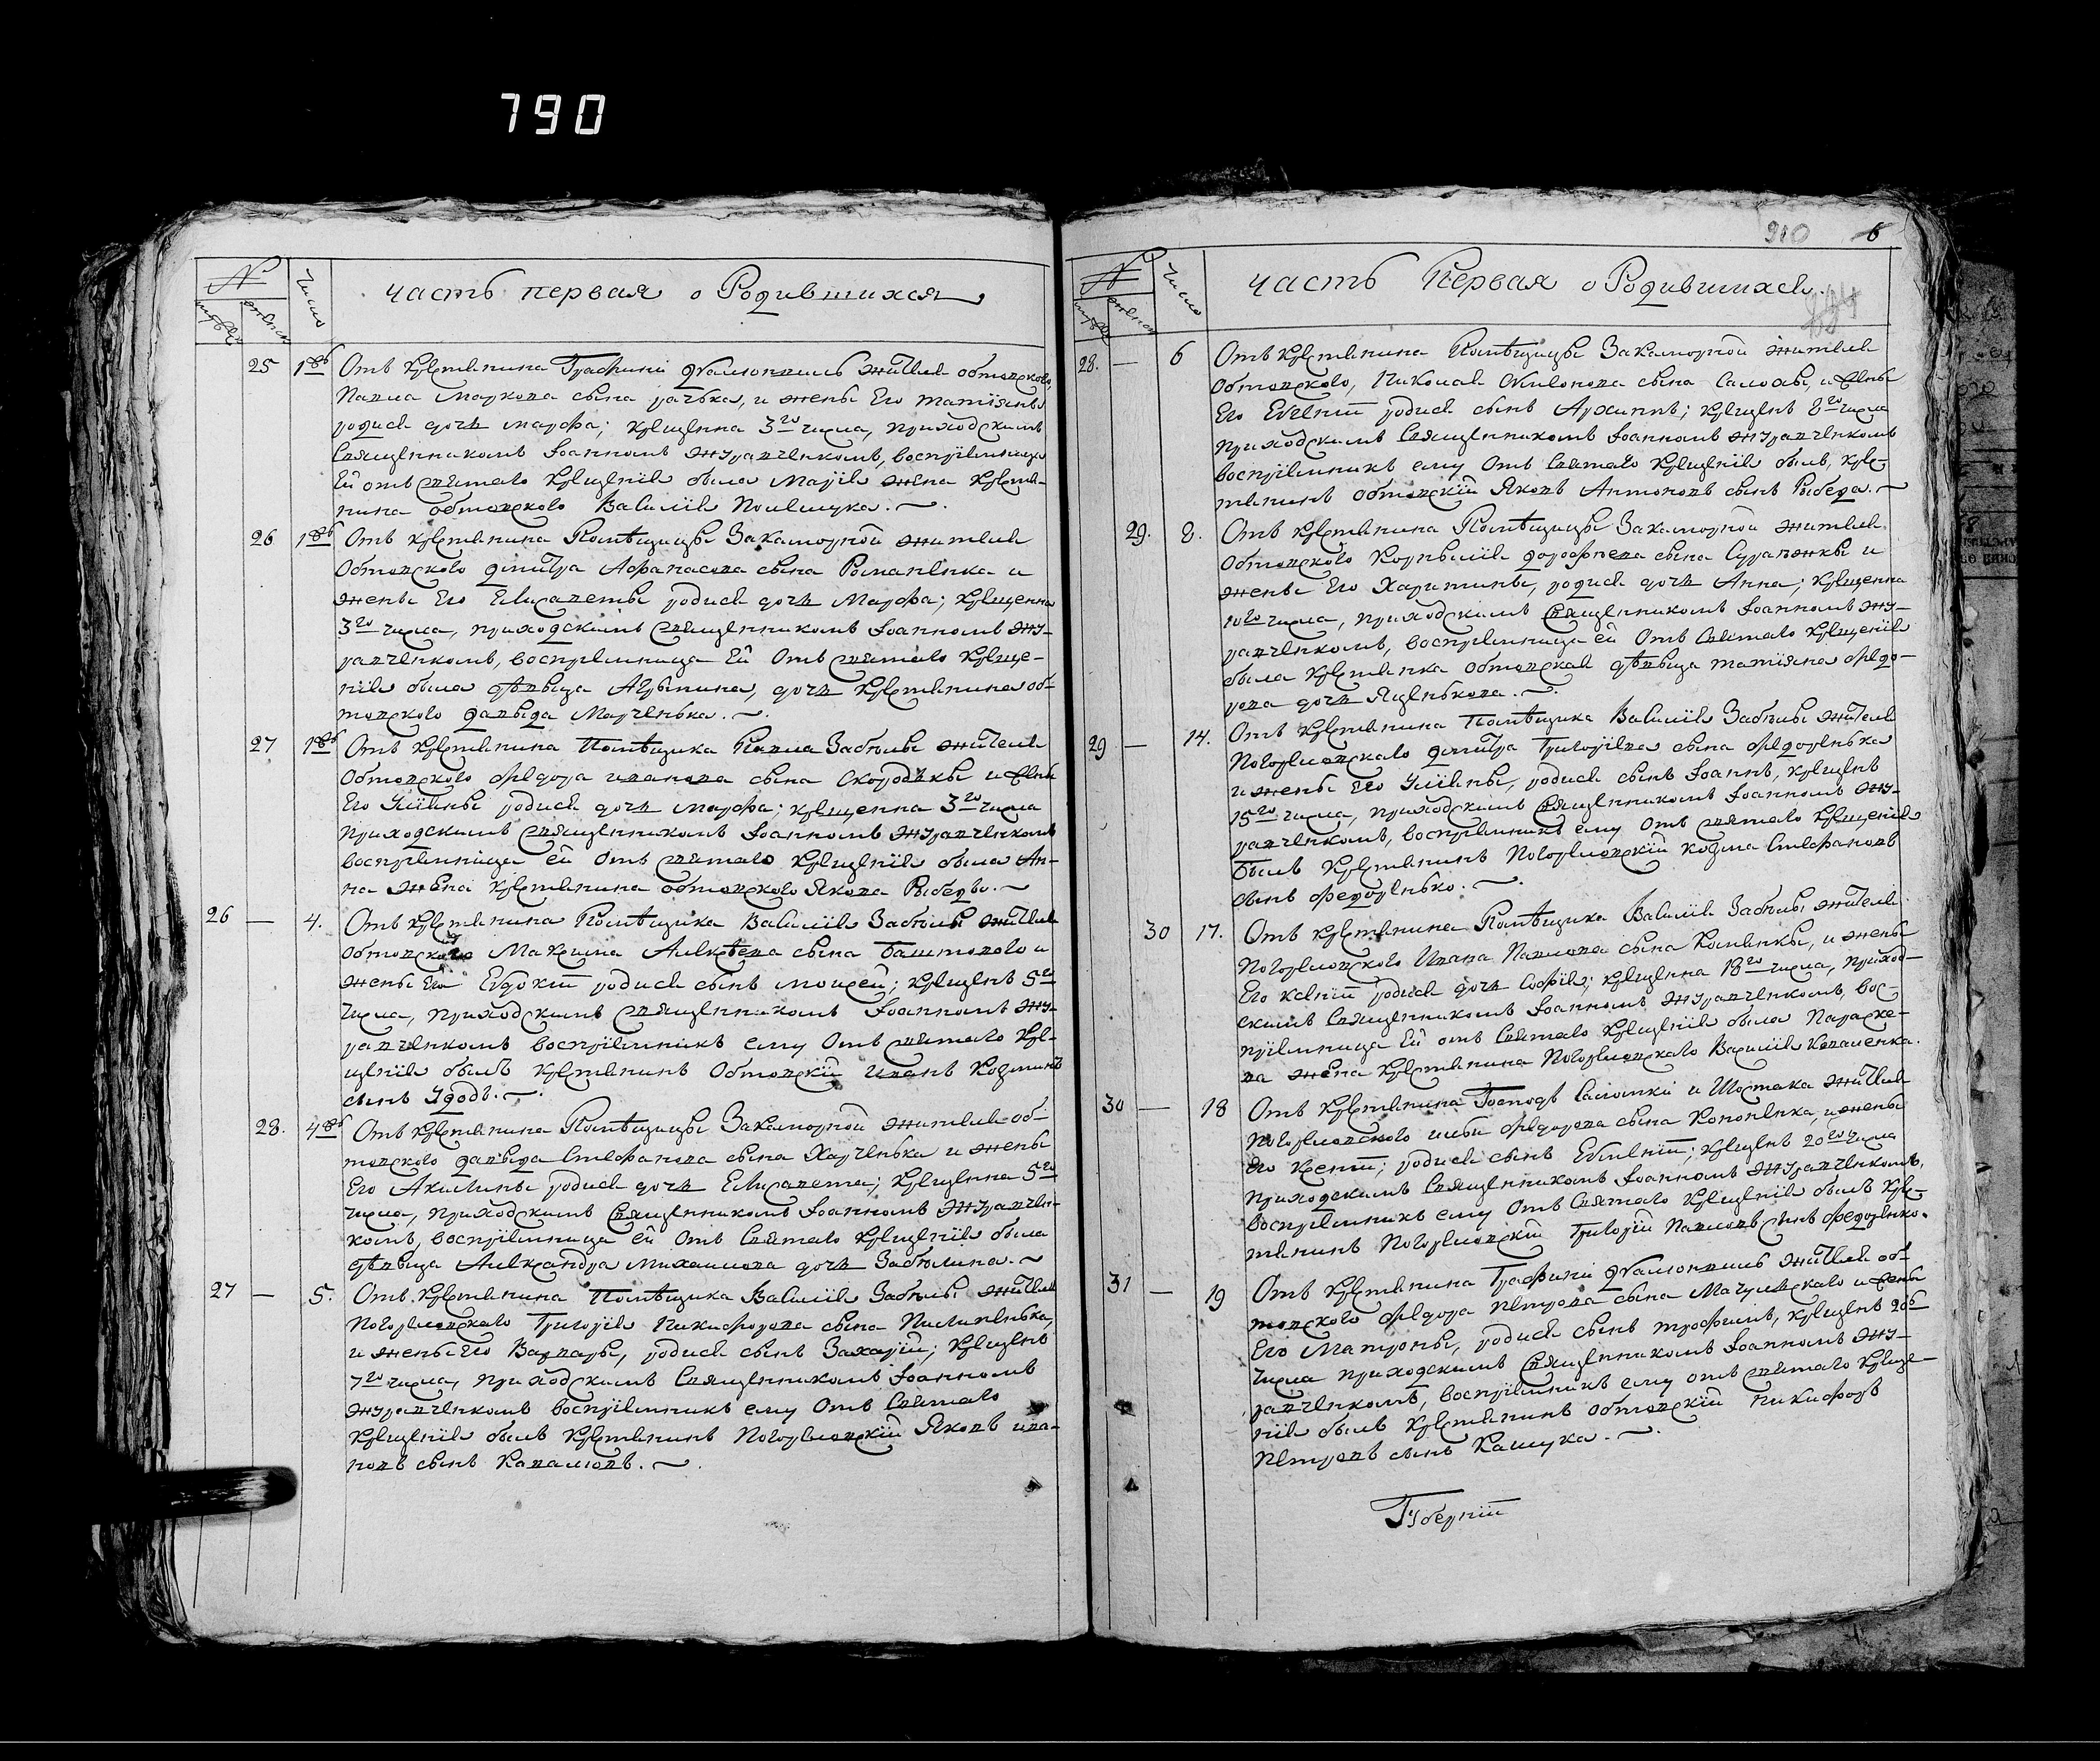 790
№
Число
часть первая о Родившихся
25 1 Отъ крестянина Графини жителя обтовского
Павла Маркова сына рачька, и жены Его татіяны
родися дочь марфа; крещенна 3го числа, приходскимъ
Священникомъ Іоанномъ Журавченкомъ, воспріемница
Ей отъ святаго крещенія была Марія жена крестя-
нина обтовского Василія
26 1 Отъ крестянина Помѣщицы Закаморной жителя
Обтовского дмитра Афанасова сына Романенка и
жены Его Елисаветы родися дочь Марфа; крещенна
3го числа, приходскимъ священникомъ Іоанномъ Жу-
равченкомъ, воспріемница Ей отъ святаго креще-
нія была дѣвица Агрыпина, дочь крестянина об-
товского давыда Марченька.
27 1 Отъ крестянина Помѣщика Павла Забѣлы жителя
Обтовского федора иванова сына и жены
Его Уліяны родися дочь марфа; крещенна 3го числа
приходскимъ священникомъ Іоанномъ Журавченкомъ
воспріемница ей отъ святаго крещенія была Ан-
на жена крестянина обтовского Якова
26 — 4. Отъ крестянина Помѣщика Василія Забѣлы жителя
обтовского Максима Алексѣева сына Баштового и
жены Его Евдокіи родися сынъ мойсей; крещенъ 5го
числа, приходскимъ священникомъ Іоанномъ Жу-
равченкомъ воспріемникъ ему отъ святаго кре-
щенія былъ крестянинъ Обтовскій Иванъ Козминъ
сынъ Удодъ.
28. 4 Отъ крестянина Помѣщицы Закаморной жителя об-
товского давыда Стефанова сына Харченька и жены
Его Акилины родися дочь Елисавета; крещенна 5го
числа, приходскимъ Священникомъ Іоанномъ Журавчен-
комъ, воспріемница ей отъ Святаго крещенія была
дѣвица Александра михаилова дочь Забѣлина.
27 — 5. Отъ крестянина Помѣщика Василія Забѣлы жителя
Погореловскаго Григорія Никифорова сына Пилипенька,
и жены Его Варвары, родися сынъ Захарій; крещенъ
7го числа, приходскимъ Священникомъ Іоанномъ
Журавченкомъ воспріемникъ ему отъ Святаго
крещенія былъ крестянинъ Погореловскій Яковъ ива-
новъ сынъ
910 6
№
Число
часть Первая о Родившихся.
28. — 6 Отъ крестянина Помѣщицы Закаморной жителя
обтовского, Николая сына и жены
Его Евгеніи родися сынъ Архиппъ; крещенъ 8го числа
приходскимъ Священникомъ Іоанномъ Журавченкомъ
воспріемникъ ему отъ Святаго крещенія былъ, кре-
стянинъ обтовскій Яковъ Антоновъ сынъ
29. 8. Отъ крестянина Помѣщицы Закаморной жителя
обтовского Корнылія дорофеева сына и
жены Его Харитины, родися дочь Анна; крещенна
10го числа, приходскимъ Священникомъ Іоанномъ Жу-
равченкомъ, воспріемница ей отъ Святаго крещенія
была крестянка обтовская дѣвица татіяна федо-
рова дочь Яценькова.
29 — 14. Отъ крестянина Помѣщика Василія Забѣлы жителя
Погореловскаго дмитра Григоріева сына федоренька
и жены Его Уліяны, родися сынъ Іоаннъ, крещенъ
15го числа, приходскимъ Священникомъ Іоанномъ Жу-
равченкомъ, воспріемникъ ему отъ святаго крещенія
былъ крестянинъ Погореловскій козма Стефановъ
сынъ федоренько.
30 17. Отъ крестянина Помѣщика Василія Забѣлы жителя
Погореловского Ивана Павлова сына и жены
Его ксеніи родися дочь Софія; крещенна 18го числа, приход-
скимъ Священникомъ Іоанномъ Журавченкомъ, вос-
пріемница Ей отъ Святаго крещенія была Параске-
ва жена крестянина Погореловскаго Василія
30 — 18 Отъ крестянина Господъ и Шостака жителя
Погореловского ильи федорова сына Кононенка, и жены
Его ксеніи; родися сынъ крещенъ 20го числа
приходскимъ Священникомъ Іоанномъ Журавченкомъ,
воспріемникъ ему отъ Святаго крещенія былъ кре-
стянинъ Погореловскій Григорій Павловъ сынъ федоренко.
31 — 19 Отъ крестянина Графини жителя об-
товского федора Петрова сына и жены
Его Матроны, родися сынъ трофимъ, крещенъ
числа приходскимъ Священникомъ Іоанномъ Жу-
равченкомъ, воспріемникъ ему отъ святаго креще-
нія былъ крестянинъ обтовскій Никифоръ
Петровъ сынъ
Губерніи